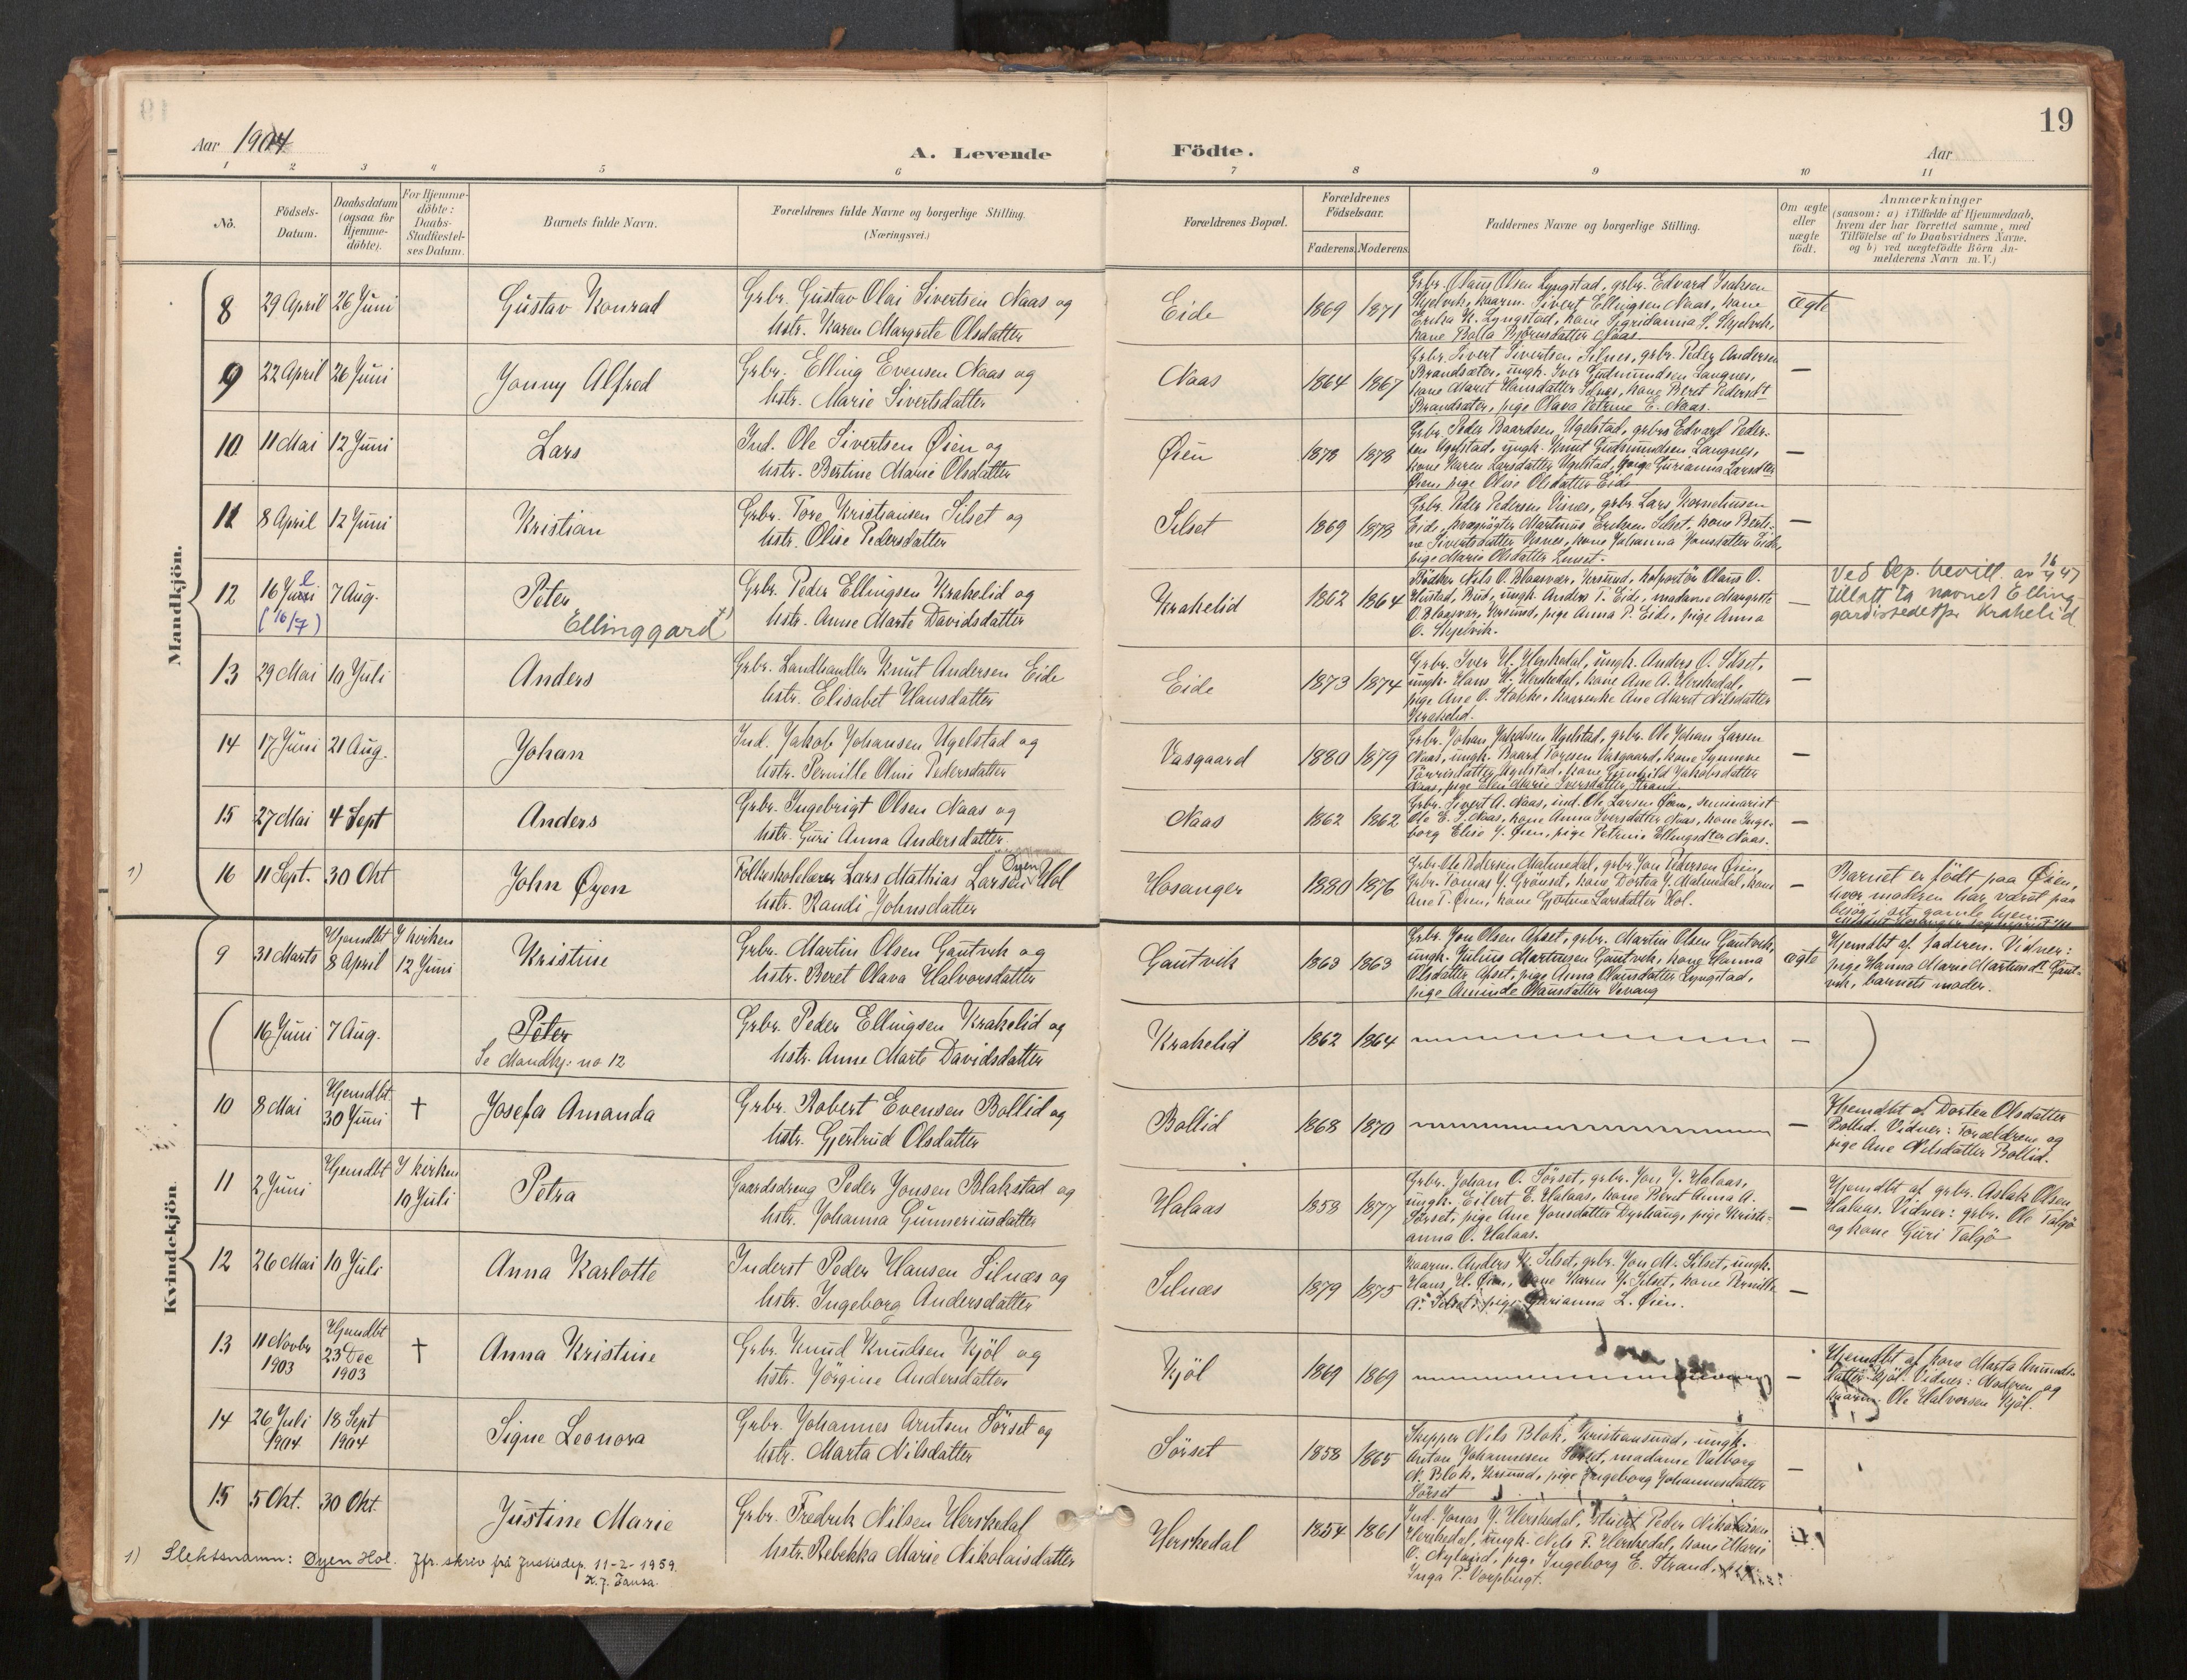 19
Aar 1904
A. Levende Födte.
Aar
1 2 3 4 5 6 7 8 9 10 11
No.
Födsels-
Datum.
Daabsdatum
(ogsaa for
Hjemme-
döbte).
For Hjemme-
döbte:
Daabs-
Stadfæstel-
ses Datum.
Barnets fulde Navn.
Forældrenes fulde Navne og borgerlige Stilling.
(Næringsvei.)
Forældrenes Bopæl.
Forældrenes
Födselsaar.
Faderens. Moderens.
Faddernes Navne og borgerlige Stilling.
Om ægte
eller
uægte
födt.
Anmærkninger
(saasom: a) i Tilfælde af Hjemmedaab,
hvem der har forrettet samme, med
Tilföielse af to Daabsvidners Navne,
og b) ved uægtefödte Börn An-
melderens Navn m. V.)
Mandkjön.
8 29 April 26 Juni Gustav Konrad
Grbr. Gustav Olai Sivertsen Naas og
hstr. Karen Margrete Olsdatter
Eide 1869 1871
Grbr. Olaus Olsen Lyngstad, grbr. Edvard Isaksen
Skjelvik, kaarm. Sivert Ellingsen Naas, kone
Erika K. Lyngstad, kone Sigridanna S. Skjelvik,
kone Balla Björnsdatter Naas.
ægte
9 22 April 26 Juni Jonny Alfred
Grbr. Elling Evensen Naas og
hstr. Marie Sivertsdatter
Naas 1864 1867
Grbr. Sivert Sivertsen Silnes, grbr. Peder Andersen
Brandsæter, ungk. Iver Gudmundsen Langnes,
kone Marit Hansdatter Silnes, kone Beret Pedersdt
Brandsæter, pige Olava Petrine E. Naas.
—
10 11 Mai 12 Juni Lars
Ind. Ole Sivertsen Øien og
hstr. Bertine Marie Olsdatter
Øien 1878 1878
Grbr. Peder Baardsen Ugelstad, grbr. Edvard Peder-
sen Ugelstad, ungk. Knut Gudmundsen Langnes,
kone Karen Larsdatter Ugelstad, pige Gurianna Larsdter
Øien, pige Oline Olsdatter Eide
—
11 8 April 12 Juni Kristian
Grbr. Tore Kristiansen Silset og
hstr. Olise Pedersdatter
Silset 1869 1878
Grbr. Peder Pedersen Visnes, grbr. Lars Korneliusen
Eide, Martinus Eriksen Silset, kone Berti-
ne Sivertsdatter Visnes, kone Johanna Jonsdatter Eide,
pige Marie Olsdatter
—
12 16 Juli 7 Aug. Peter
(16/7)
Ellinggard 1)
Grbr. Peder Ellingsen Krakelid og
hstr. Anne Marte Davidsdatter
Krakelid 1862 1864
Bödker Nils O. Blaasvær, Krsund, kolportör Olaus O.
Hustad, Bud, ungk. Anders T. Eide, madame Margrete
O. Blaasvær, Krsund, pige Anna P. Eide, pige Anna
O. Skjelvik.
—
Ved Dep. bevill. av 16/4 47
tillatt ta navnet Elling-
gard istedetfor Krakelid
13 29 Mai 10 Juli Anders
Grbr. Landhandler Knut Andersen Eide
hstr. Elisabet Hansdatter
Eide 1873 1874
Grbr. Iver H. Herskedal, ungk. Anders O. Silset,
ungk. Hans H. Herskedal, kone Ane A. Herskedal,
pige Ane O. Stokke, kaarenke Ane Marit Nilsdatter
Krakelid.
—
14 17 Juni 21 Aug. Johan
Ind. Jakob Johansen Ugelstad og
hstr. Pernille Oline Pedersdatter
Vasgaard 1880 1879
Grbr. Johan Jakobsen Ugelstad, grbr. Ole Johan Larsen
Naas, ungk. Baard Toresen Vasgaard, kone Synnøve
Tørrisdatter Ugelstad, kone Gunhild Jakobsdatter
Naas, pige Elen Marie Iversdatter Strand.
—
15 27 Mai 4 Sept Anders
Grbr. Ingebrigt Olsen Naas og
hstr. Guri Anna Andersdatter
Naas 1862 1862
Grbr. Sivert A. Naas, ind. Ole Larsen Øien, seminarist
Ole E. S. Naas, kone Anna Iversdatter Naas, kone Inge-
borg Elise J. Øien, pige Petrine Ellingsdter Naas.
—
1) 16 11 Sept. 30 Okt John Øyen
Folkeskolelærer Lars Mathias Larsen Øyen Hol
hstr. Randi Johnsdatter
Hosanger 1880 1876
Grbr. Ole Pedersen Malmedal, grbr. Jon Pedersen Øien,
Grbr. Tomas J. Grönset, kone Dortea J. Malmedal, kone
Ane T. Øien, kone Gjertine Larsdatter Hol.
—
Barnet er födt paa Øien,
hvor moderen har været paa
besög i sit gamle hjem.
Kvindekjön.
9 31 Marts Hjemdbt 8 April I kirken 12 Juni Kristine
Grbr. Martin Olsen Gautvik og
hstr. Beret Olava Halvorsdatter
Gautvik 1863 1863
Grbr. Jon Olsen Aset, grbr. Martin Olsen Gautvik,
ungk. Julius Martinsen Gautvik, kone Hanna
Olsdatter Aset, pige Anna Olausdatter Lyngstad,
pige Aminde Olausdatter Vevang
ægte
Hjemdbt af faderen. Vidner:
pige Hanna Marie Martinsdt Gaut-
vik, barnets moder.
( 16 Juni 7 Aug. Peter
Se Mandkj: no 12
Grbr. Peder Ellingsen Krakelid og
hstr. Anne Marte Davidsdatter
Krakelid 1862 1864 — )
10 8 Mai Hjemdbt 30 Juni † Josefa Amanda
Grbr. Robert Evensen Bollid og
hstr. Gjertrud Olsdatter
Bollid 1868 1870 —
Hjemdbt af Dortea Olsdatter
Bollid. Vidner: Forældrene og
pige Ane Nilsdatter Bollid.
11 2 Juni Hjemdbt I kirken 10 Juli Petra
Gaardsdreng Peder Jonsen Blakstad og
hstr. Johanna Gunneriusdatter
Halaas 1858 1877
Grbr. Johan O. Sörset, grbr. Jon J. Halaas,
ungk. Eilert E. Halaas, kone Beret Anna A.
Sörset, pige Ane Jonsdatter Dyrhaug, pige Kristi-
anna O. Halaas.
—
Hjemdbt af grbr. Aslak Olsen
Halaas. Vidner: grbr. Ole Talgö
og kone Guri Talgö
12 26 Mai 10 Juli Anna Karlotte
Inderst Peder Hansen Silnæs og
hstr. Ingeborg Andersdatter
Silnæs 1879 1875
Kaarm. Anders K. Silset, grbr. Jon M. Silset, ungk.
Hans H. Øien, kone Karen J. Silset, kone Pernille
A. Silset, pige Gurianna L. Øien.
—
13 11 Novbr 1903 Hjemdbt 23 Dec 1903 † Anna Kristine
Grbr. Knud Knudsen Kjöl og
hstr. Jörgine Andersdatter
Kjöl 1869 1869 —
Hjemdbt af kone Marta Amunds-
datter Kjöl. Vidner: Moderen og
kaarm. Ole Halvorsen Kjöl.
14 26 Juli 1904 18 Sept 1904 Signe Leonora
Grbr. Johannes Arntsen Sörset og
hstr. Marta Nilsdatter
Sörset 1858 1865
Skipper Nils Blok, Kristiansund, ungk.
Anton Johannesen Sörset, madame Valborg
N. Blok, Krsund, pige Ingeborg Johannesdatter
Sörset
—
15 5 Okt. 30 Okt. Justine Marie
Grbr. Fredrik Nilsen Herskedal
hstr. Rebekka Marie Nikolaisdatter
Herskedal 1854 1861
Ind. Jonas J. Herskedal, Peder Nikolaisen
Herskedal, ungk. Nils F. Herskedal, kone Marie
O. Nyland, pige Ingeborg E. Strand, pige
Inga P. Vorpbugt.
1) Slektsnamn: Øyen Hol. Jfr. skriv frå Justisdep. 11-2-1959.
K. J. Tausa.